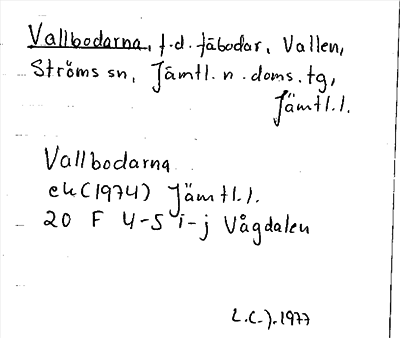 Vallbodarna, f.d. fäbodar, Vallen,
Ströms sn, Jämtl. n. doms. tg,
Jämtl.l.
Vallbodarna
ek (1974) Jämtl.l.
20 F 4-5 i-j Vågdalen
L.C.J. 1977